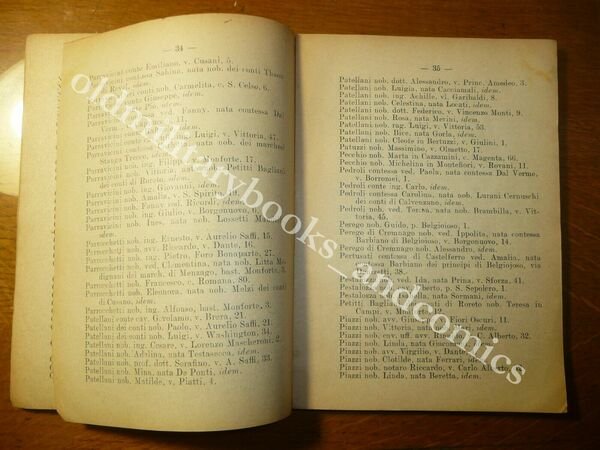 — 34 —
Parravicini conte Emiliano, v. Cusani, 5.
contessa Sabina, nata nob. dei conti
idem.
nob. Carmelita, c. S. Celso, 6.
Giuseppe, idem.
Pio, idem.
Fanny, nata contessa Dal
Verm
Luigi, v. Vittoria, 47.
nata dei marchesi
Stanga Trecco, idem.
Parravicini nob. ing. Filippo Monforte, 17.
Parravicini nob. Petitti Bagliani
dei conti di Roreto, idem.
Parravicini nob. ing. Giovanni, idem.
Parravicini nob. Amalia, v. S. Spirito
Parravicini nob. Fanny ved. Ricordi, idem.
Parravicini nob. ing. Giulio, v. Borgonuovo,
Parravicini nob. Ines, nata nob. Lossetti
idem.
Parrocchetti nob. ing. Ernesto, v. Aurelio Saffi, 15.
Parrocchetti nob. avv. Riccardo, v. Dante, 16.
Parrocchetti nob. rag. Pietro, Foro Bonaparte, 27.
Parrocchetti nob. ved. Clementina, nata nob. Litta Mo-
dignani dei march. di Menzago, bast. Monforte, 3.
Parrocchetti nob. Francesco, c. Romana, 80.
Parrocchetti nob. Eleonora, nata Melzi dei conti
di Cusano, idem.
Parrocchetti nob. ing. Alfonso, bast. Monforte, 3.
Patellani conte cav. Gerolamo, v. Brera, 21.
Patellani dei conti nob. Paolo, v. Aurelio Saffi, 21.
Patellani dei conti nob. Luigi, v. Washington, 34.
Patellani nob. ing. Cesare, v. Lorenzo Mascheroni, 2.
Patellani nob. Adelina, nata Testasecca, idem.
Patellani nob. prof. dott. Serafino, v. A. Saffi, 33.
Patellani nob. Mina, nata De Ponti, idem.
Patellani nob. Matilde, v. Piatti, 4.
— 35 —
Patellani nob. dott. Alessandro, v. Princ. Amedeo, 3.
Patellani nob. Luigia, nata Cacciamali, idem.
Patellani nob. ing. Achille, v. Garibaldi, 8.
Patellani nob. Celestina, nata Locati, idem.
Patellani nob. dott. Federico, v. Vincenzo Monti, 9.
Patellani nob. Rosa, nata Merini, idem.
Patellani nob. rag. Luigi, v. Vittoria, 53.
Patellani nob. Bice, nata Gorla, idem.
Patellani nob. Cleofe in Bertuzzi, v. Giulini, 1.
Patuzzi nob. Massimino, v. Olmetto, 17.
Pecchio nob. Marta in Cazzamini, c. Magenta, 66.
Pecchio nob. Michelina in Montefiori, v. Rovani, 11.
Pedroli contessa ved. Paola, nata contessa Dal Verme,
v. Borromei, 1.
Pedroli conte ing. Carlo, idem.
Pedroli contessa Carolina, nata nob. Lurani Cernuschi
dei conti di Calvenzano, idem.
Pedroli nob. ved. Teresa, nata nob. Brambilla, v. Vit-
toria, 45.
Perego nob. Guido, p. Belgioioso, 1.
Perego di Cremnago nob. ved. Ippolita, nata contessa
Barbiano di Belgioioso, v. Borgonuovo, 14.
Perego di Cremnago nob. Alessandro, idem.
Pertusati contessa di Castelferro ved. Amalia, nata
contessa Barbiano dei principi di Belgioioso, via
38.
Ida, nata Prina, v. Sforza, 41.
Pestalozza Alberto, p. S. Sepolcro, 1.
Pestalozza nata Sormani, idem.
Petitti Bagliani di Roreto nob. Teresa in
Campi, v. Mon
Piazzi nob. avv. Giu Fiori Oscuri, 11.
Piazzi nob. Vittoria, nat idem.
Piazzi nob. cav. uff. avv. Ri Alberto, 32.
Piazzi nob. Linda, nata Giacomini, idem.
Piazzi nob. avv. Virgilio, v. Dante,
Piazzi nob. Clotilde, nata Ferrari, idem.
Piazzi nob. notaro Riccardo, v. Carlo Alberto,
Piazzi nob. Linda, nata Beretta, idem.
oldmilitarybooks_andcomics